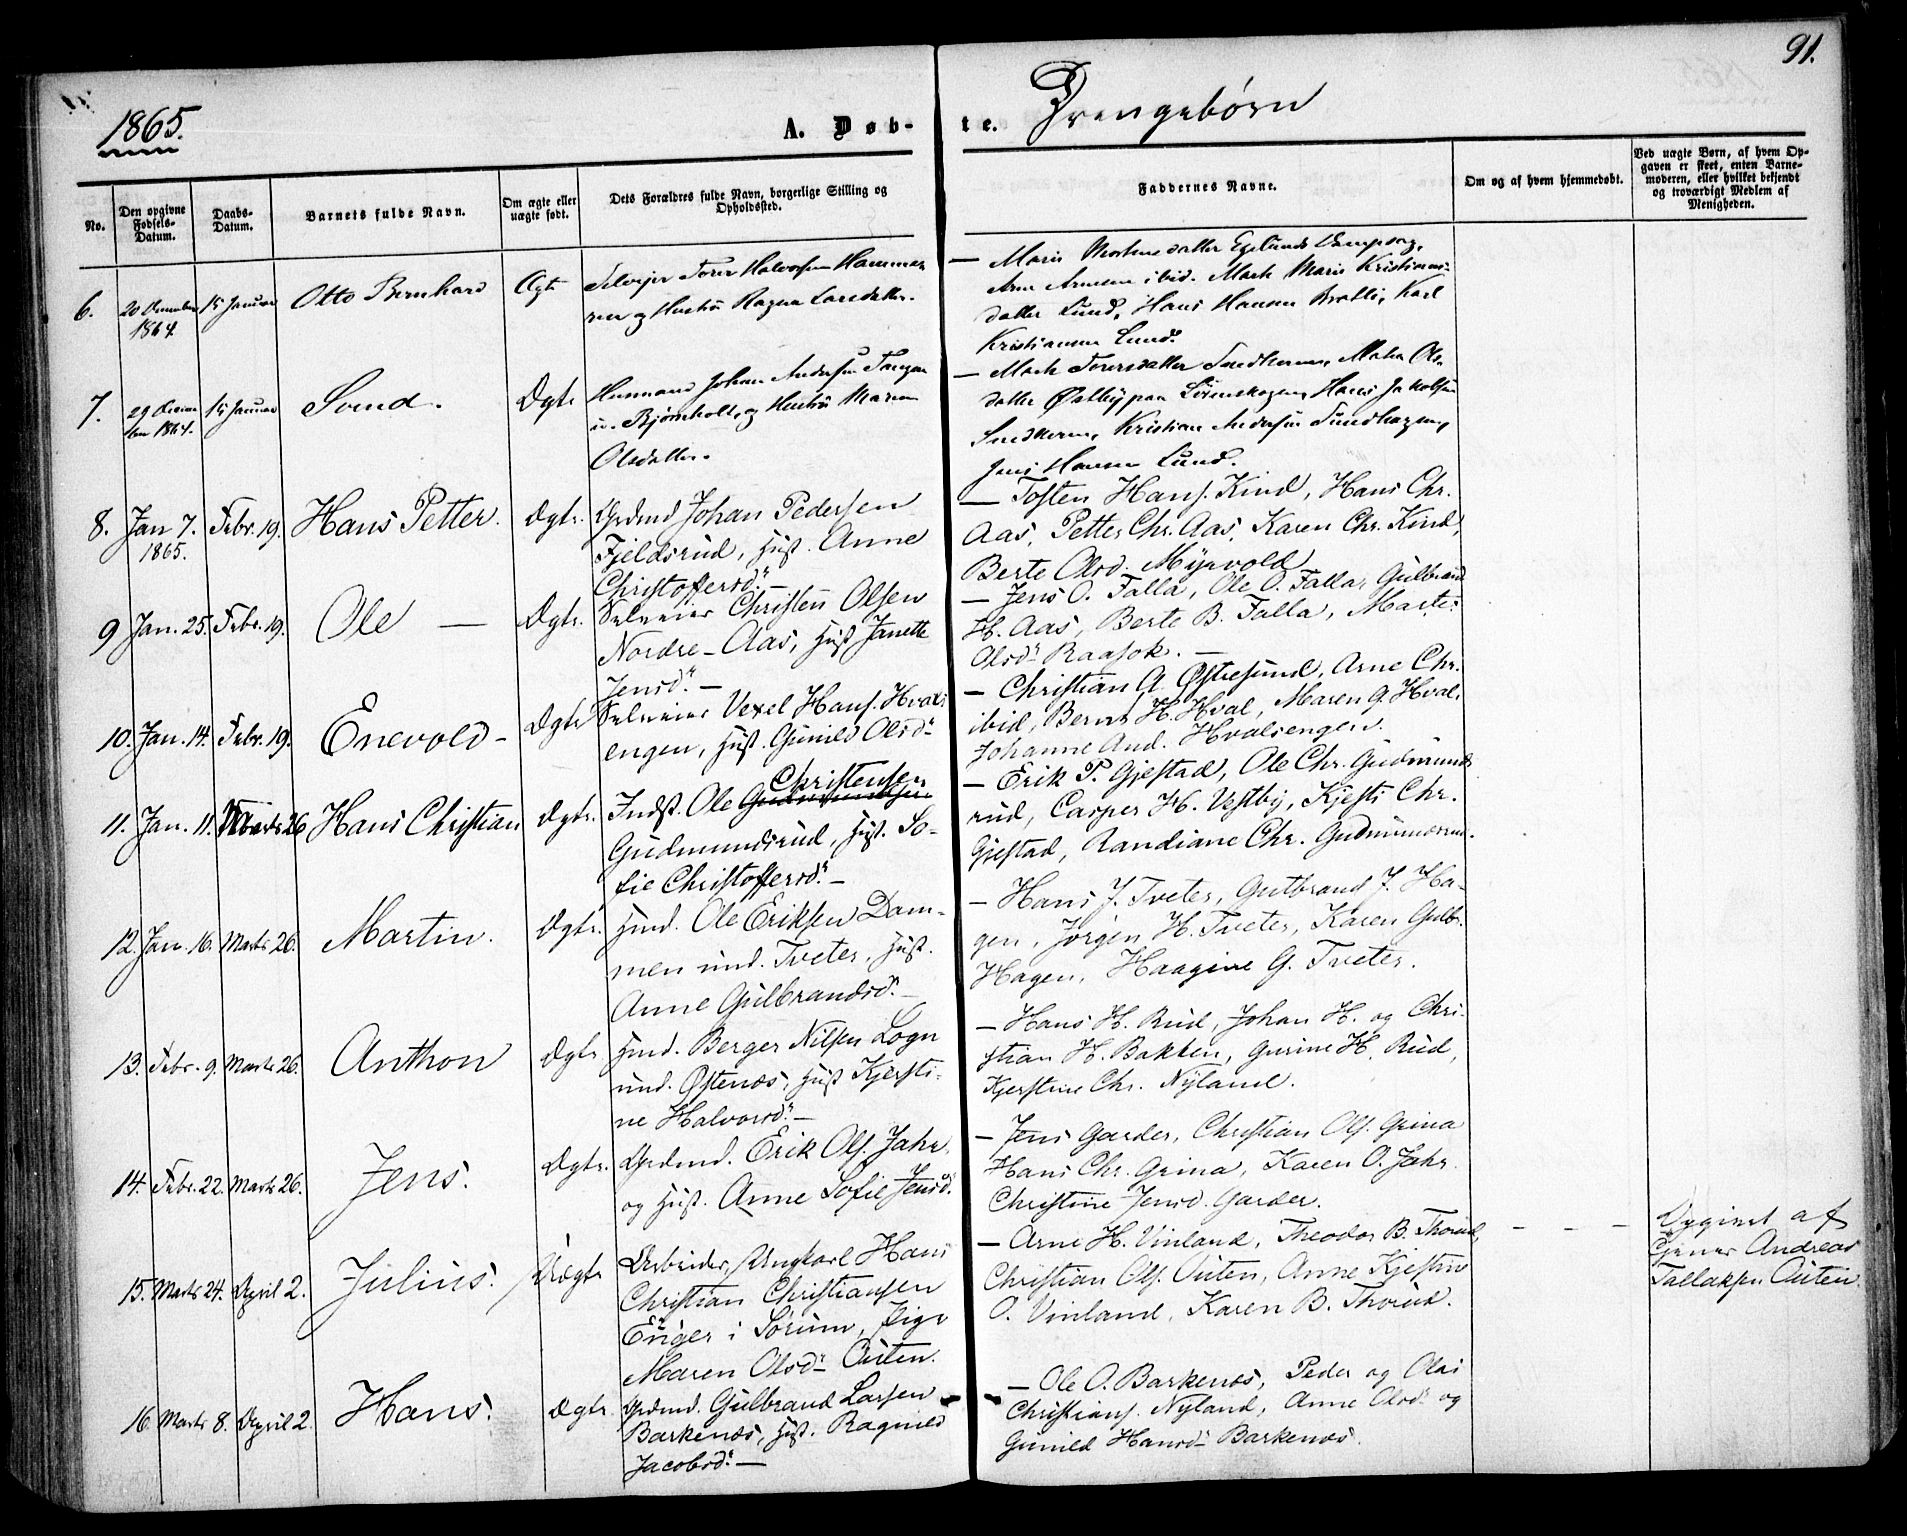 91.
1865.
A. Døb-
te. Drengebørn
No.
Den opgivne Fødsels-Datum.
Daabs-Datum.
Barnets fulde Navn.
Om ægte eller uægte født.
Dets Forældres fulde Navn, borgerlige Stilling og Opholdssted.
Faddernes Navne.
Om og af hvem hjemmedøbt.
Ved uægte Børn, af hvem Opgaven er skeet, enten Barnemoderen, eller hvilket bekjendt og troværdigt Medlem af Menigheden.
6. 20 December 1864. 15 Januar Otto Bernhard Ægte
Selveier Torer Halvorsen Hammer
og Hustru Ragna Larsdatter.
— Maris Mortensdatter
Arne Arnesen ibid. Marth Maris Kristians-
datter Lund, Hans Hansen Bratli, Karl
Kristiansen Lund.
7. 29 December 1864. 15 Januar Svend. Ægte
Husmand Johan Andersen Tangen
u. Bjørnholt, og Hustru Maren
Olsdatter.
— Marth Torersdatter Snedkeren, Maria Ols-
datter Østby paa Lørenskogen, Hans Jakobsen
Snedkeren, Kristian Andersen Sundhagen,
Jens Hansen Lund.
8. Jan 7. 1865. Febr. 19. Hans Petter. Ægte.
Grdmd Johan Pedersen
Fjeldsrud, Hust. Anne
Christoffersd. —
— Tosten Hans. Kind, Hans Chr.
Aas, Petter Chr. Aas, Karen Chr. Kind,
Berte Olsd. Myrvold
9 Jan. 25. Febr. 19. Ole — Ægte.
Selveier Christen Olsen
Nordre-Aas, Hust Janette
Jensd. —
— Jens O. Falla, Ole O. Falla, Gulbrand
H. Aas, Berte B. Falla, Marte
Olsd. Raasok. —
10. Jan. 14. Febr. 19. Enevold — Ægte
Selveier Vexel Hans. Hvals
engen, Hust. Gunild Olsd.
— Christian A. Østresund, Arne Chr.
ibid, Bernt H. Hval, Maren G. Hval.
Johanne And. Hvalsengen.
11. Jan. 11. Marts 26 Hans Christian Ægte.
Indst. Ole Christensen
Gudmundsrud, Hust. So-
fie Christoffersd. —
— Erik P. Gjestad, Ole Chr. Gudmunds
rud, Casper H. Vestby, Kjesti Chr.
Gjestad, Randiane Chr. Gudmundsrud
12. Jan. 16. Marts 26. Martin. Ægte.
Hmd. Ole Eriksen Dam-
men und. Tveter, Hust.
Anne Gulbrandsd. —
— Hans J. Tveter, Gutbrand J. Ha-
gen, Jørgen H. Tveter, Karen Gulb.
Hagen, Haagine G. Tveter.
13. Febr. 9. Marts 26. Anthon Ægte
Hmd. Berger Nilsen Logn
und. Østenæs, Hust Kjersti-
ne Halvorsd. —
— Hans H. Rud, Johan H. og Chri-
stian H. Bakken, Gurine H. Rud,
Kjerstine Chr. Nyland.
14. Febr. 22. Marts 26. Jens. Ægte.
Grdmd. Erik Ols. Jahr,
og Hust. Anne Sofie Jensd.
— Jens Garder, Christian Ols. Grina
Hans Chr. Grina, Karen O. Jahr.
Christine Jensd. Garder.
15. Marts 24. April 2. Julius. Uægte
Arbeider, Ungkarl Hans
Christian Christiansen
Enger i Sørum, Pige
Maren Olsd. Outen.
— Arne H. Vinland, Theodor B. Thorud,
Christian Ols. Outen, Anne Kjestine
O. Vinland, Karen B. Thorud.
— — —
Opgivet af
Gjener Andreas
Tallaksen Outen.
16. Marts 8. April 2. Hans. Ægte
Grdmd. Gulbrand Larsen
Barkenæs, Hust. Ragnild
Jacobsd. —
— Ole O. Barkenæs, Peder og Olai
Christians. Nyland, Anne Olsd. og
Gunild Hansd. Barkenæs.